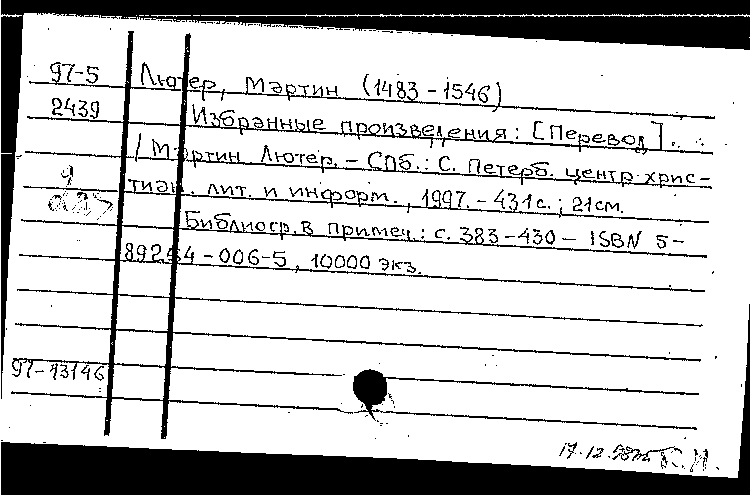 97-5 Лютер, Мартин (1483-1546)
2439 Избранные произведения: [Перевод]...
/ Мартин Лютер. - СПб.: С. Петерб. центр хрис-
тиан. лит. и информ., 1997. - 431с.; 21см.
Библиогр. в примеч.: с. 383-430 - ISBN 5-
89254-006-5, 10000 экз.
97-13146
17.12.98